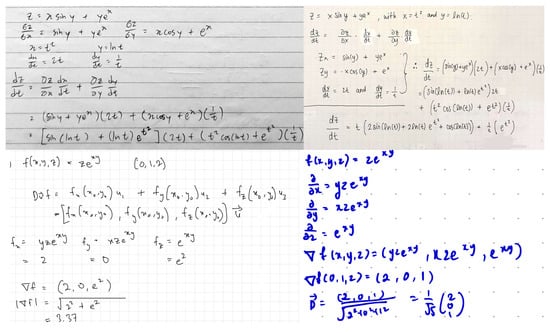 z = x sin y + ye^x
∂z/∂x = sin y + ye^x   ∂z/∂y = x cos y + e^x
x = t²   y = ln t
dx/dt = 2t   dy/dt = 1/t
dz/dt = ∂z/∂x dx/dt + ∂z/∂y dy/dt
= (sin y + ye^x)(2t) + (x cos y + e^x)(1/t)
= [sin(ln t) + (ln t) e^t²](2t) + (t² cos(ln t) + e^t²)(1/t)
z = x sin y + ye^x, with x = t² and y = ln(t).
dz/dt = ∂z/∂x · dx/dt + ∂z/∂y · dy/dt
Zx = sin(y) + ye^x
Zy = x cos(y) + e^x
dx/dt = 2t and dy/dt = 1/t
∴ dz/dt = (sin(y) + ye^x)(2t) + (x cos(y) + e^x)(1/t)
= (sin(ln(t)) + ln(t) e^t²) 2t
+ (t² cos(ln(t)) + e^t²)(1/t)
dz/dt = t(2 sin(ln(t)) + 2 ln(t) e^t² + cos(ln(t))) + 1/t (e^t²)
1 f(x,y,z) = ze^xy   (0,1,2)
Duf = fx(x0,y0) u1 + fy(x0,y0) u2 + fz(x0,y0) u3
= [fx(x0,y0), fy(x0,y0), fz(x0,y0)] u
fx = yze^xy   fy = xze^xy   fz = e^xy
= 2   = 0   = e²
∇f = (2, 0, e²)
|∇f| = √(2² + e²)
= 3.37
f(x,y,z) = ze^xy
∂/∂x = yze^xy
∂/∂y = xze^xy
∂/∂z = e^xy
∇f(x,y,z) = (yze^xy, xze^xy, e^xy)
∇f(0,1,2) = (2, 0, 1)
= (2,0,1)/√(2²+0²+1²) = 1/√5 (2 0 1)